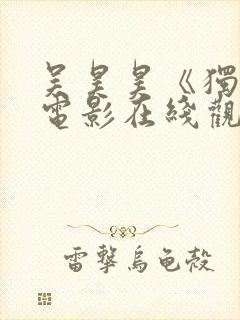 吴昊昊《獨
電影在綫觀
雷擊烏龟殼